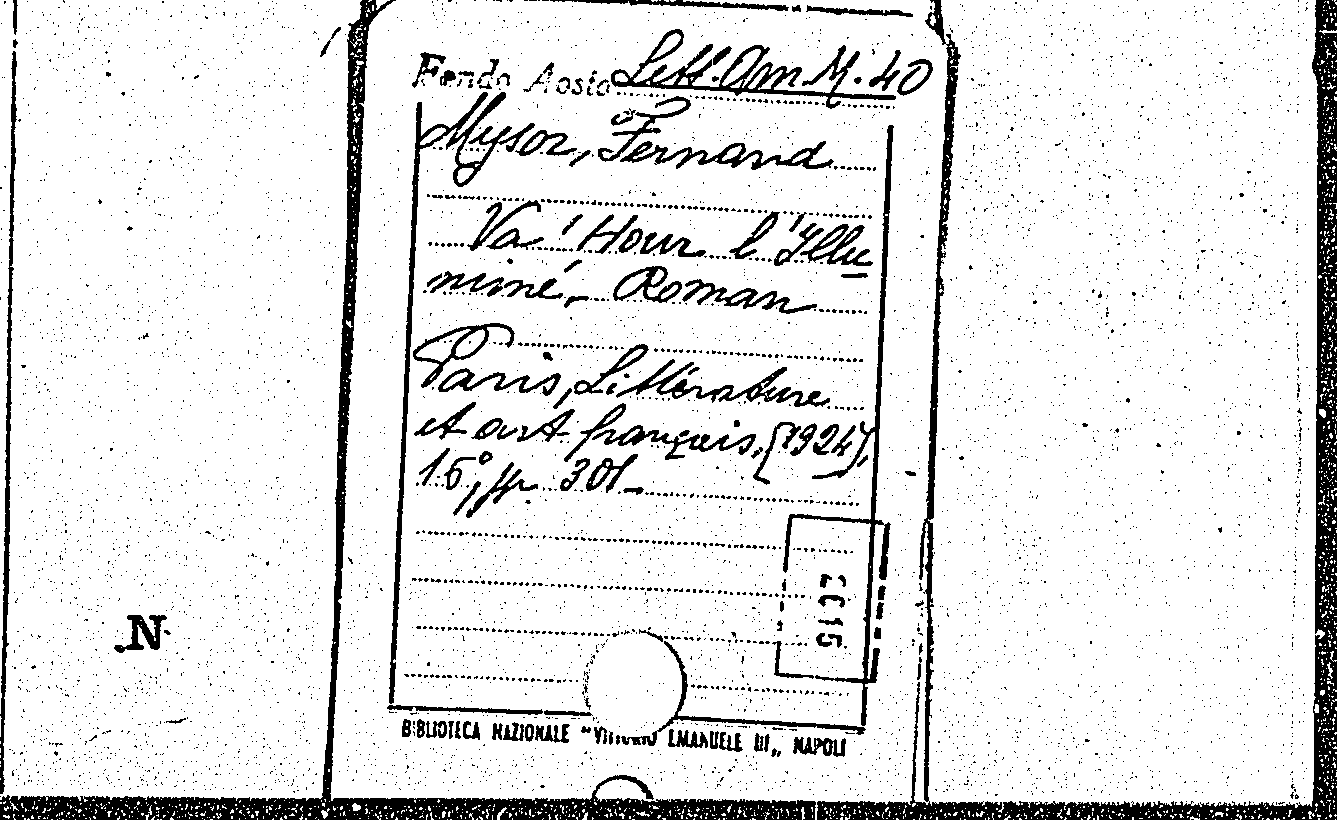 Fondo Aosta Lett. Am M. 40
Mysor, Fernand
Va' Hour l'Illu
miné, Roman
Paris, Littérature
et art français, [1924],
16°, pp. 301_
2015
N
BIBLIOTECA NAZIONALE "VITTORIO EMANUELE III„ NAPOLI